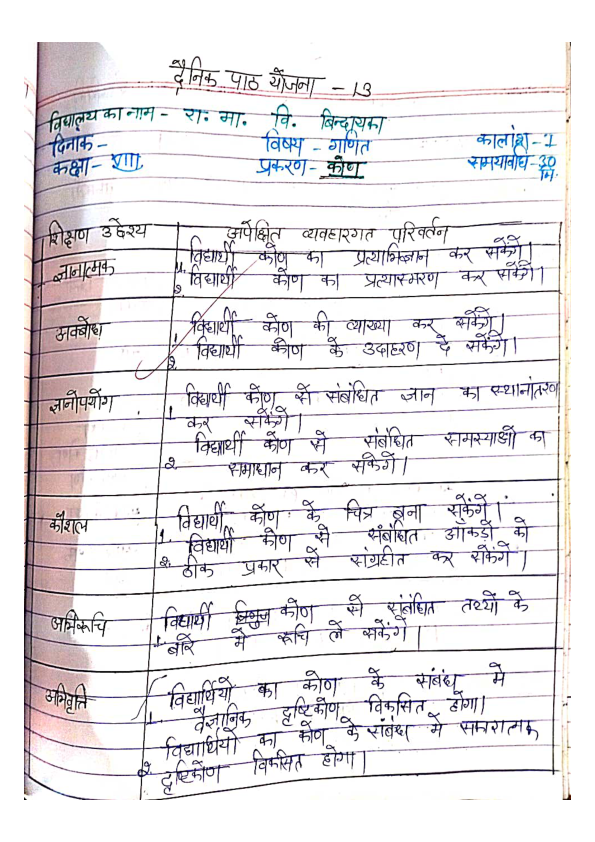 दैनिक पाठ योजना - 13
विद्यालय का नाम - रा. मा. वि. बिन्दायका
दिनांक -    विषय - गणित    कालांश - 1
कक्षा - VIII    प्रकरण - कोण    समयावधि - 30 मि.
शिक्षण उद्देश्य    अपेक्षित व्यवहारगत परिवर्तन
ज्ञानात्मक    1. विद्यार्थी कोण का प्रत्याभिज्ञान कर सकेंगे।
2. विद्यार्थी कोण का प्रत्यास्मरण कर सकेंगे।
अवबोध    1. विद्यार्थी कोण की व्याख्या कर सकेंगे।
2. विद्यार्थी कोण के उदाहरण दे सकेंगे।
ज्ञानोपयोग    1. विद्यार्थी कोण से संबंधित ज्ञान का स्थानांतरण
कर सकेंगे।
2. विद्यार्थी कोण से संबंधित समस्याओं का
समाधान कर सकेंगे।
कौशल    1. विद्यार्थी कोण के चित्र बना सकेंगे।
2. विद्यार्थी कोण से संबंधित आंकड़ों को
ठीक प्रकार से संग्रहीत कर सकेंगे।
अभिरूचि    1. विद्यार्थी कोण से संबंधित तथ्यों के
बारे में रूचि ले सकेंगे।
अभिवृत्ति    1. विद्यार्थियों का कोण के संबंध में
वैज्ञानिक दृष्टिकोण विकसित होगा।
2. विद्यार्थियों का कोण के संबंध में सकारात्मक
दृष्टिकोण विकसित होगा।